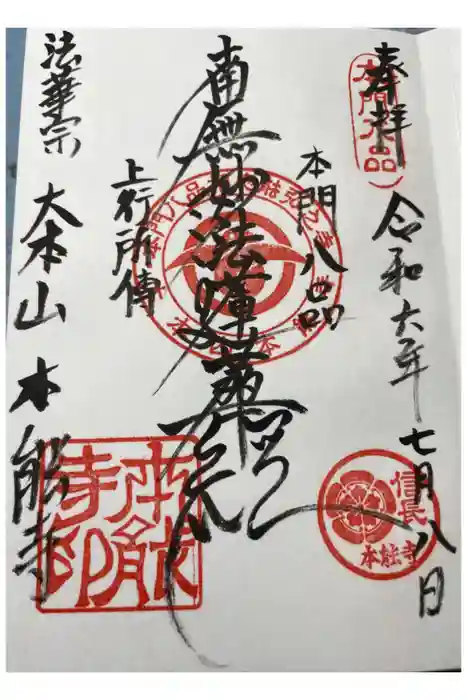 奉拝
本門八品
令和六年七月八日
信長
本能寺
本門八品
南無妙法蓮華経
上行所傳
法華宗
大本山 本能寺
本能寺印